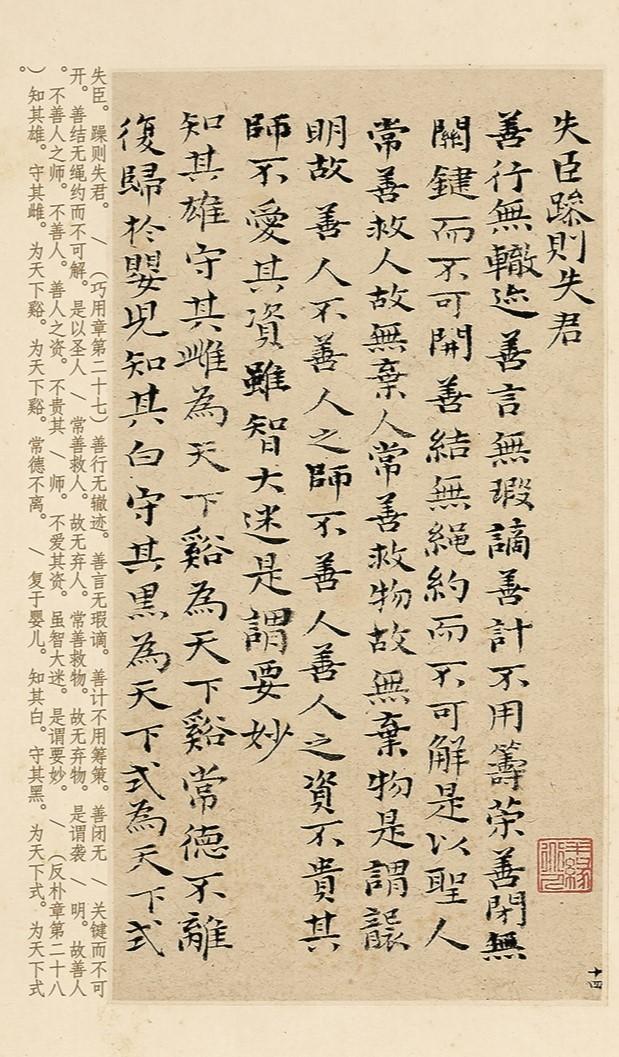 失臣躁則失君
善行無轍迹善言無瑕謫善計不用籌策善閉無
關鍵而不可開善結無繩約而不可解是以聖人
常善救人故無棄人常善救物故無棄物是謂襲
明故善人不善人之師不善人善人之資不貴其
師不愛其資雖智大迷是謂要妙
知其雄守其雌為天下谿為天下谿常德不離
復歸於嬰兒知其白守其黑為天下式為天下式
十四
失臣。躁则失君。 / （巧用章第二十七）善行无辙迹。善言无瑕谪。善计不用筹策。善闭无 / 关键而不可
开。善结无绳约而不可解。是以圣人 / 常善救人。故无弃人。常善救物。故无弃物。是谓袭 / 明。故善人
。不善人之师。不善人。善人之资。不贵其 / 师。不爱其资。虽智大迷。是谓要妙。 / （反朴章第二十八
）知其雄。守其雌。为天下谿。为天下谿。常德不离。 / 复于婴儿。知其白。守其黑。为天下式。为天下式
。